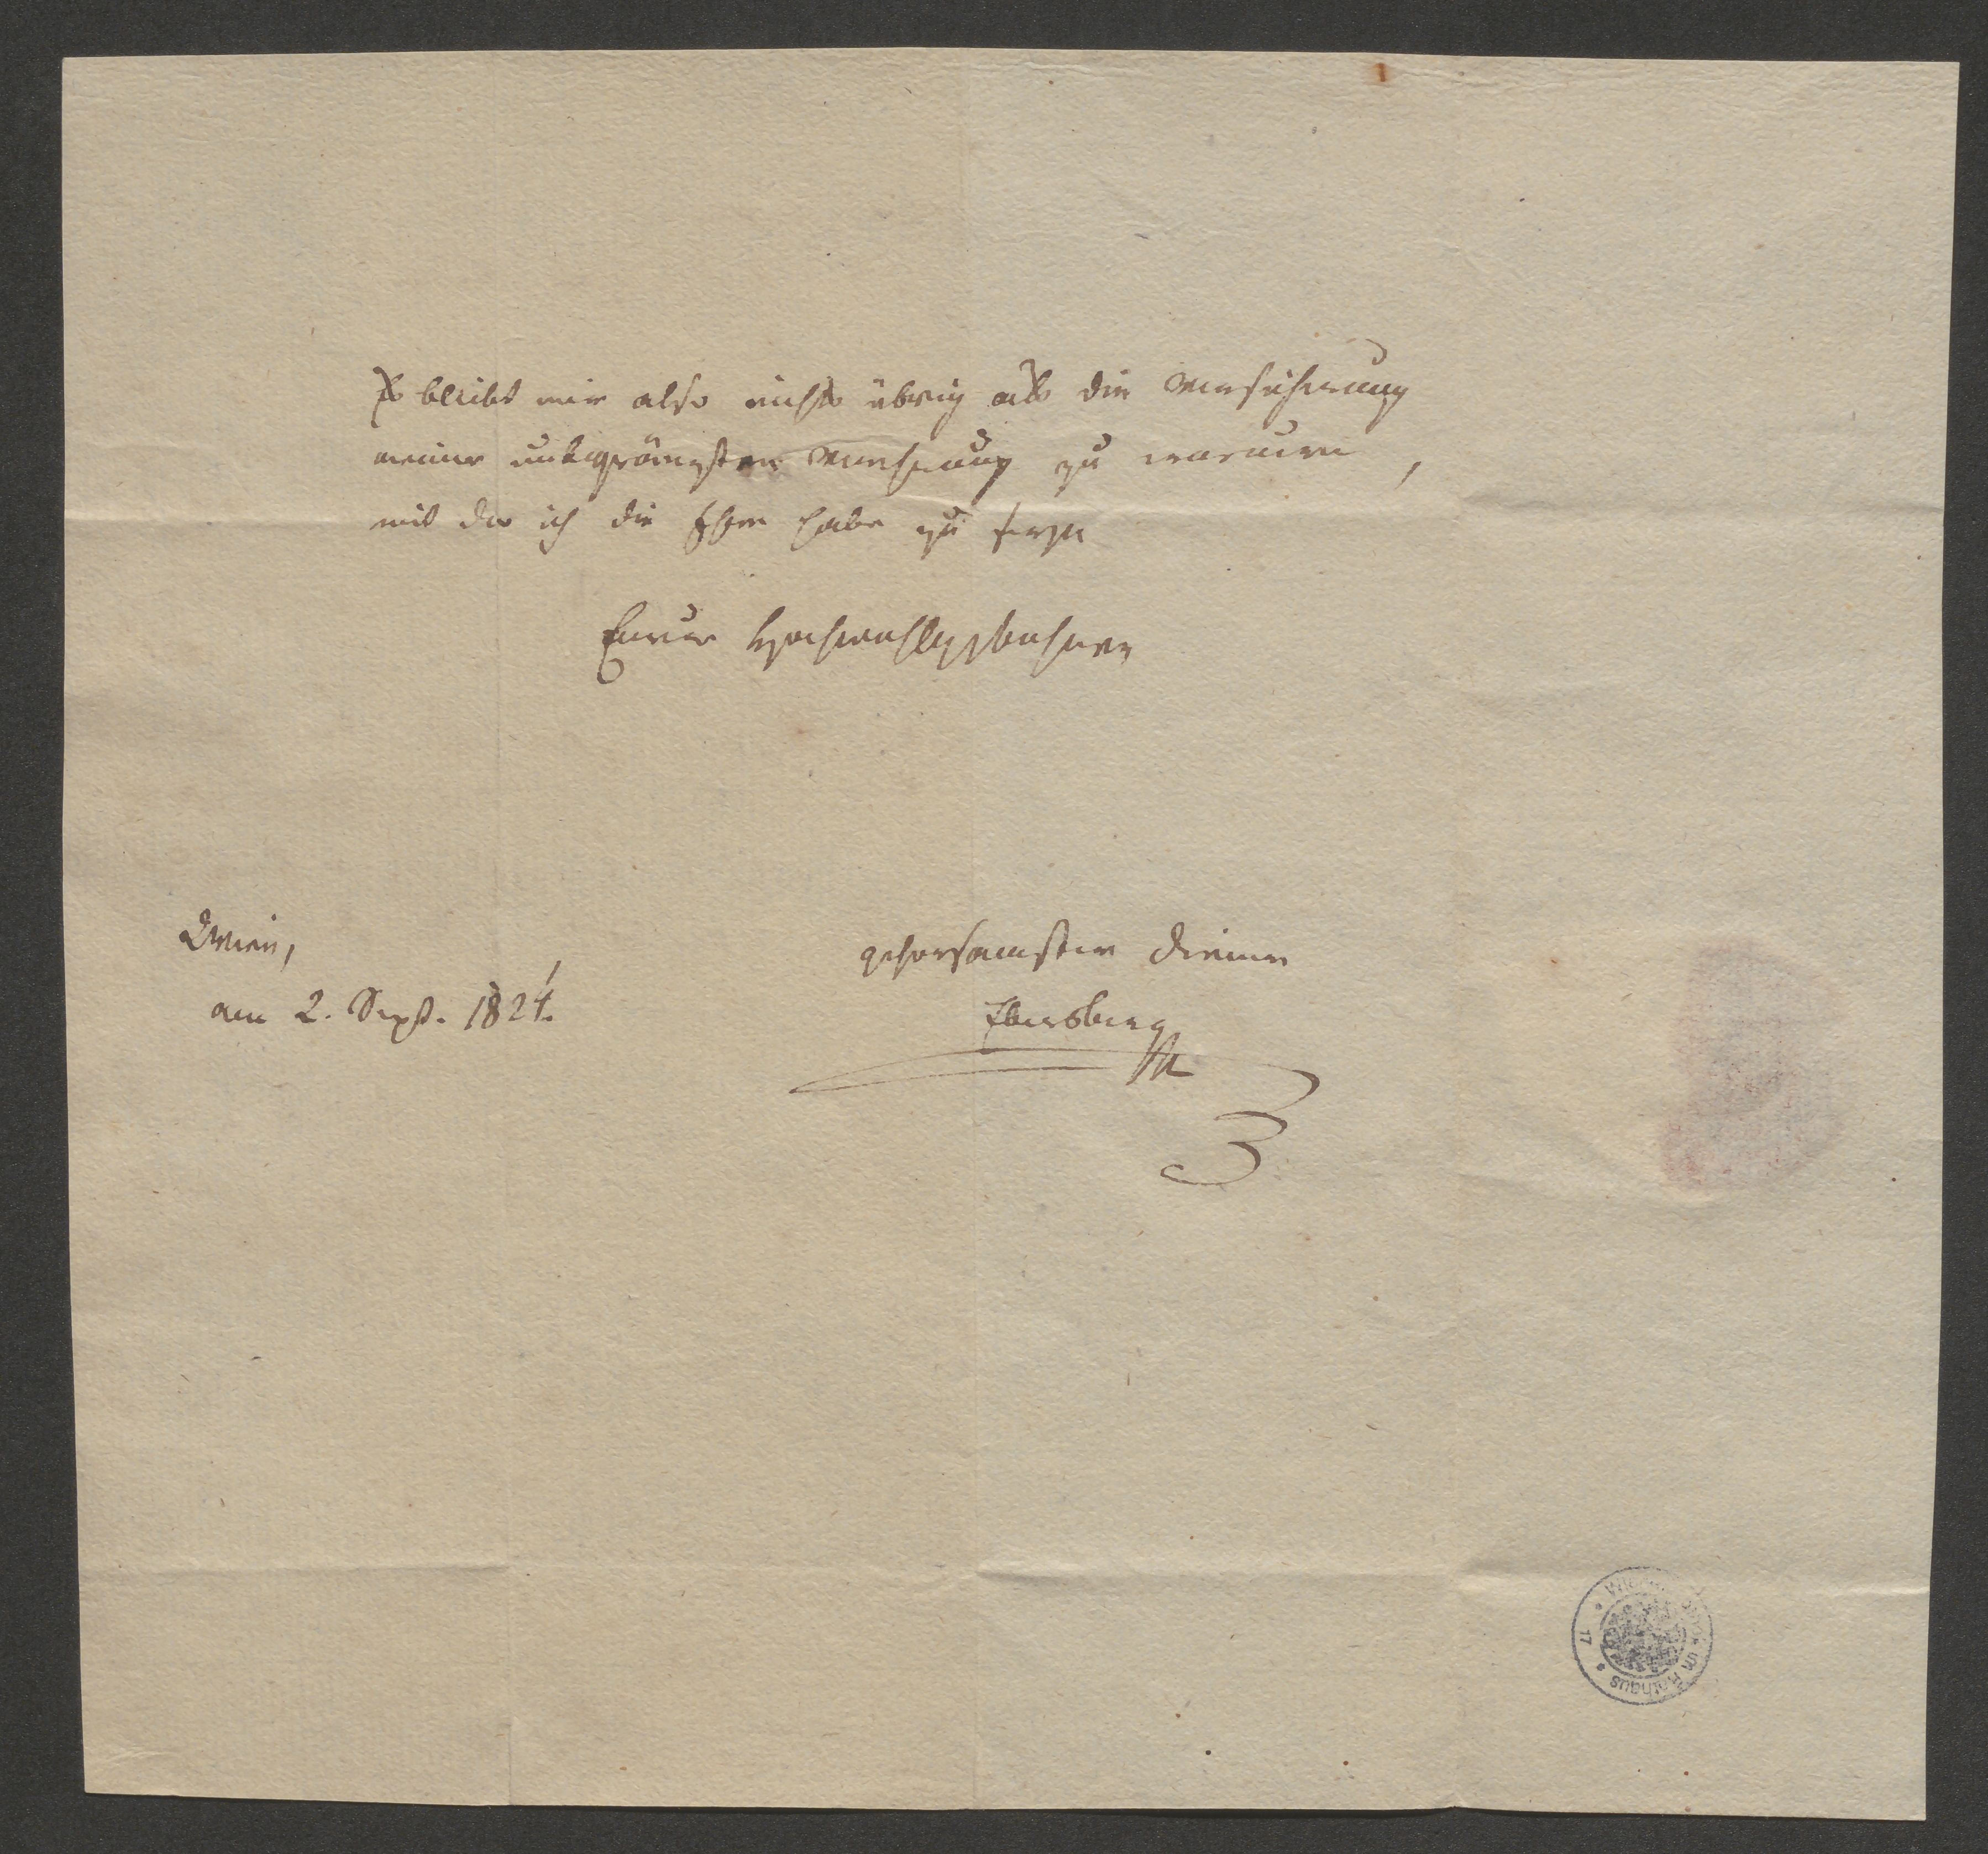 Es bleibt mir also nichts übrig als die Versicherung
meiner unbegränzten Verehrung zu erneuern,
mit der ich die Ehre habe zu seyn
Euer Hochwohlgebohren
Wien,
am 2. Sept. 1824.
gehorsamster Diener
Ebersberg
im Rathaus
17